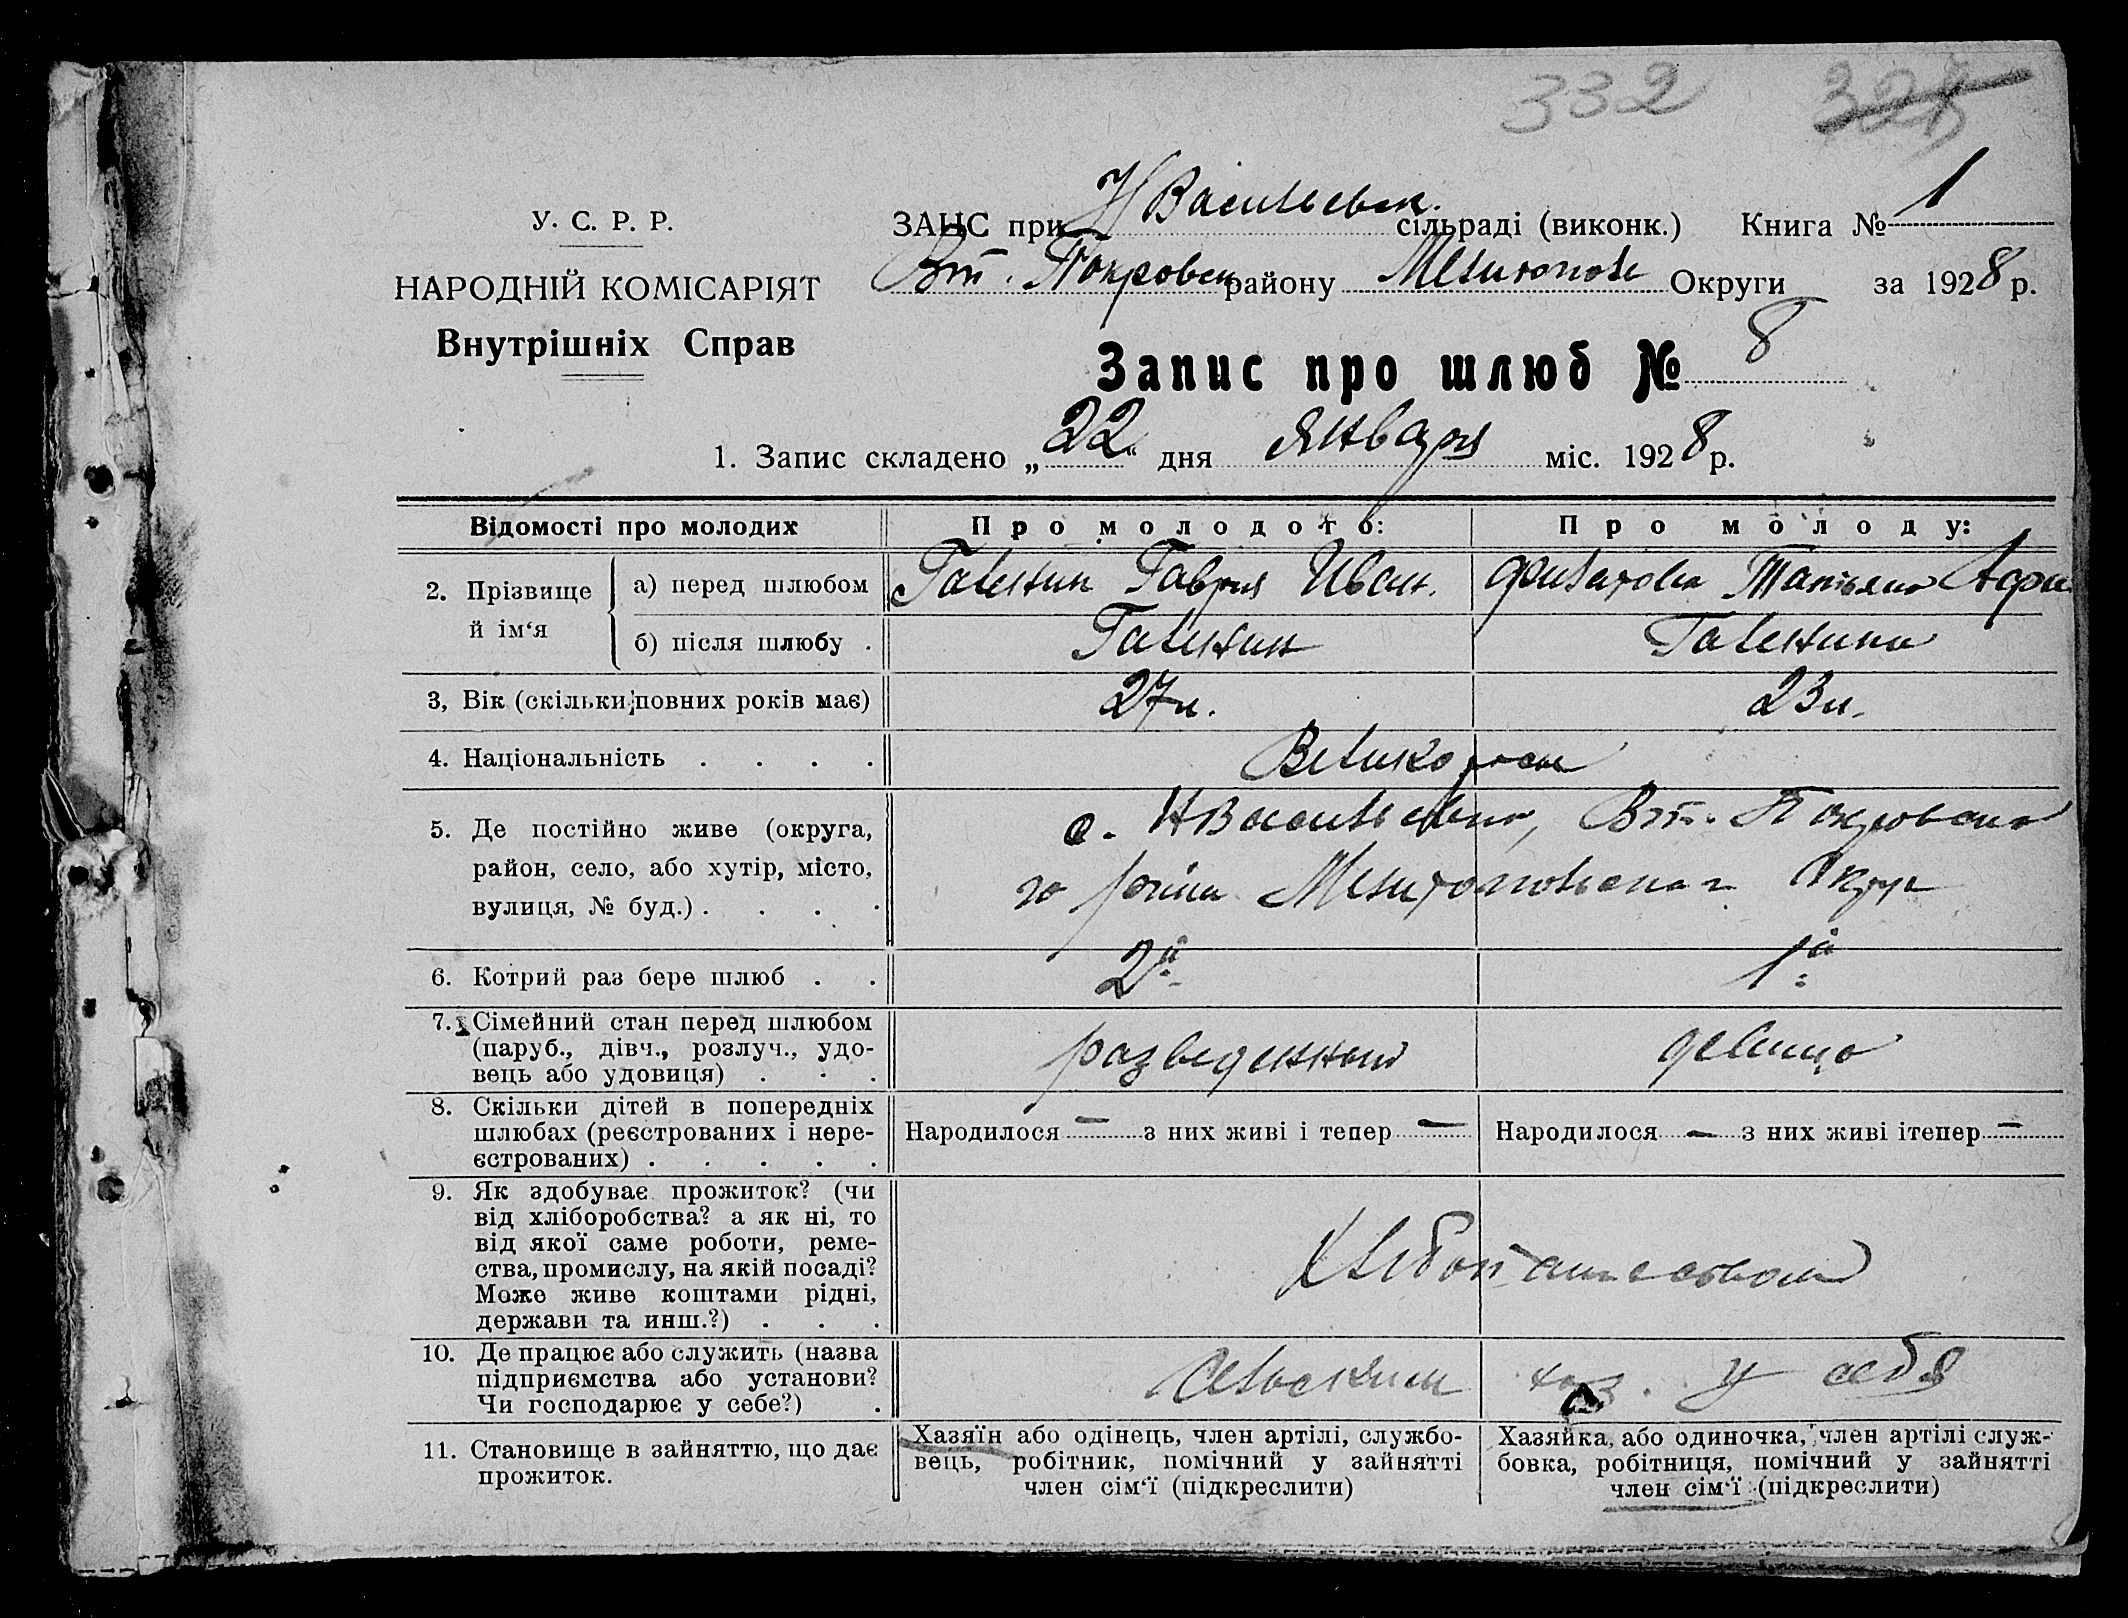 332 328
У. С. Р. Р.
НАРОДНІЙ КОМІСАРІЯТ
Внутрішніх Справ
ЗАНС при Н Васильевск. сільраді (виконк.) Книга № 1
Вт. Покровск району Мелитополь Округи за 1928 р.
Запис про шлюб № 8
1. Запис складено „22“ дня января міс. 1928 р.
Відомості про молодих Про молодого: Про молоду:
2. Прізвище й ім‘я
а) перед шлюбом Галенин Гаврил Иван. Филатова Татьяна
б) після шлюбу . Галенин Галенина
3, Вік (скільки повних років має) 27 л. 23 л.
4. Національність . . . . Великоросы
5. Де постійно живе (округа,
район, село, або хутір, місто,
вулиця, № буд.) . . . .
с. Н Васильевка, Вт. Покровско
го р Мелитопольска г Округ
6. Котрий раз бере шлюб . . 2й 1й
7. Сімейний стан перед шлюбом
(паруб., дівч., розлуч., удо-
вець або удовиця) . . .
разведенный девица
8. Скільки дітей в попередніх
шлюбах (реєстрованих і нере-
єстрованих) . . . . .
Народилося — з них живі і тепер — Народилося — з них живі ітепер —
9. Як здобуває прожиток? (чи
від хліборобства? а як ні, то
від якої саме роботи, реме-
ства, промислу, на якій посаді?
Може живе коштами рідні,
держави та инш.?) . . .
Хлебопашеством
10. Де працює або служить (назва
підприємства або установи?
Чи господарює у себе?) .
Сельским хоз. у себя
11. Становище в зайняттю, що дає
прожиток.
Хазяїн або одінець, член артілі, службо-
вець, робітник, помічний у зайнятті
член сім‘ї (підкреслити)
Хазяйка, або одиночка, член артілі служ-
бовка, робітниця, помічний у зайнятті
член сім‘ї (підкреслити)